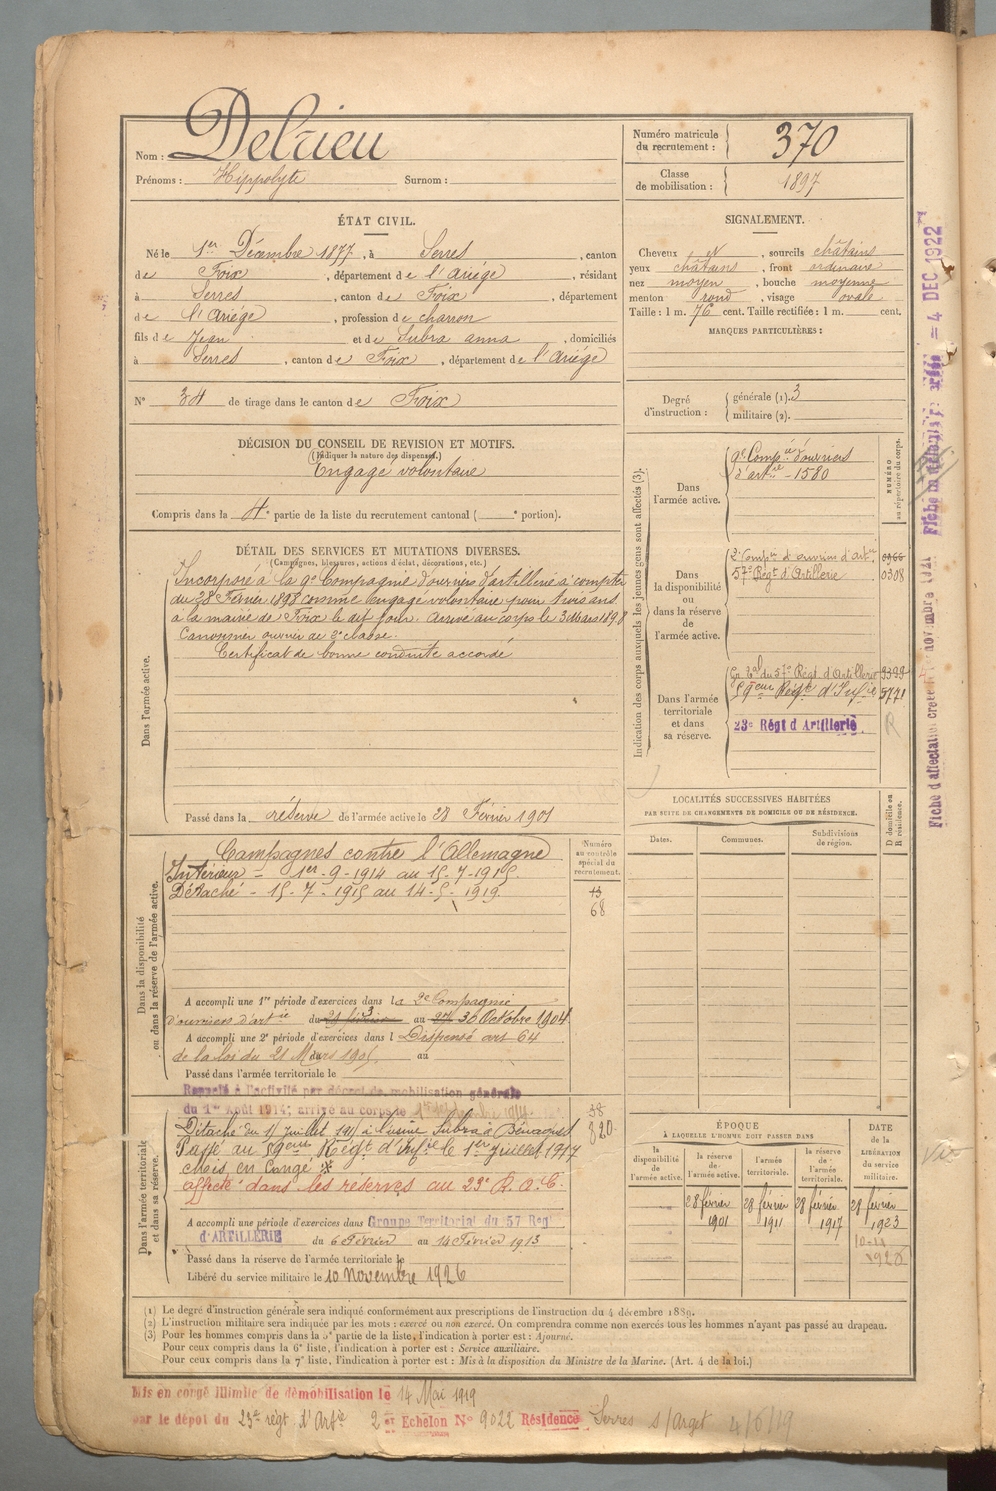 Nom : Delrieu
Prénoms : Hippolyte Surnom :
Numéro matricule du recrutement : 370
Classe de mobilisation : 1897
ÉTAT CIVIL.
Né le 1er Décembre 1877, à Serres, canton
de Foix, département de l'Ariège, résidant
à Serres, canton de Foix, département
de l'Ariège, profession de charron
fils de Jean et de Subra anna, domiciliés
à Serres, canton de Foix, département de l'Ariège
N° 34 de tirage dans le canton de Foix
SIGNALEMENT.
Cheveux et, sourcils châtains
yeux châtains, front ordinaire
nez moyen, bouche moyenne
menton rond, visage ovale
Taille : 1 m. 76 cent. Taille rectifiée : 1 m. cent.
MARQUES PARTICULIÈRES :
Degré d'instruction : générale (1). 3
militaire (2).
DÉCISION DU CONSEIL DE REVISION ET MOTIFS.
(Indiquer la nature des dispenses.)
Engagé volontaire
Compris dans la 4e partie de la liste du recrutement cantonal ( e portion).
DÉTAIL DES SERVICES ET MUTATIONS DIVERSES.
(Campagnes, blessures, actions d'éclat, décorations, etc.)
Dans l'armée active.
Incorporé à la 9e Compagnie d'ouvriers d'artillerie à compter
du 28 Février 1898 comme engagé volontaire pour trois ans
à la mairie de Foix le dit jour. Arrivé au corps le 3 Mars 1898
Canonnier ouvrier de 2e classe.
Certificat de bonne conduite accordé
Passé dans la réserve de l'armée active le 28 Février 1901
Indication des corps auxquels les jeunes gens sont affectés (3).
NUMÉRO au répertoire du corps.
Dans l'armée active.
9e Compie d'ouvriers
d'artie - 1580
Dans la disponibilité ou dans la réserve de l'armée active.
2e Compie d'ouvriers d'artie
57e Régt d'Artillerie 0308
Dans l'armée territoriale et dans sa réserve.
Gr. tal du 57e Régt d'Artillerie
59eme Régt d'Infie 5771
23e Régt d'Artillerie
R
LOCALITÉS SUCCESSIVES HABITÉES
PAR SUITE DE CHANGEMENTS DE DOMICILE OU DE RÉSIDENCE.
Dates. Communes. Subdivisions de région. D domicile ou R résidence.
Dans la disponibilité ou dans la réserve de l'armée active.
Numéro au contrôle spécial du recrutement.
13
68
Campagnes contre l'Allemagne
Intérieur - 1er-9-1914 au 15-7-1915.
Détaché - 15-7-1915 au 14-5-1919.
A accompli une 1re période d'exercices dans la 2e Compagnie
d'ouvriers d'artie du 3 au 30 Octobre 1904
A accompli une 2e période d'exercices dans l Dispensé art 64
de la loi du 21 Mars 1905 au
Passé dans l'armée territoriale le
Rappelé à l'activité par décret de mobilisation générale
du 1er Août 1914; arrivé au corps le
Dans l'armée territoriale et dans sa réserve.
38
820
Détaché du 15 juillet 1915 à l'usine Subra à Bénagues
Passé au 59eme Régt d'Infie le 1er juillet 1917
affecté dans les réserves au 23e R.A.C.
A accompli une période d'exercices dans Groupe Territorial du 57 Reg
d'ARTILLERIE du 6 Février au 14 Février 1913
Passé dans la réserve de l'armée territoriale le
Libéré du service militaire le 10 Novembre 1926
ÉPOQUE
À LAQUELLE L'HOMME DOIT PASSER DANS
la disponibilité de l'armée active. la réserve de l'armée active. l'armée territoriale. la réserve de l'armée territoriale.
DATE de la LIBÉRATION du service militaire.
28 février 1901 28 février 1911 28 février 1917 28 février 1923
(1) Le degré d'instruction générale sera indiqué conformément aux prescriptions de l'instruction du 4 décembre 1889.
(2) L'instruction militaire sera indiquée par les mots : exercé ou non exercé. On comprendra comme non exercés tous les hommes n'ayant pas passé au drapeau.
(3) Pour les hommes compris dans la 5e partie de la liste, l'indication à porter est : Ajourné.
Pour ceux compris dans la 6e liste, l'indication à porter est : Service auxiliaire.
Pour ceux compris dans la 7e liste, l'indication à porter est : Mis à la disposition du Ministre de la Marine. (Art. 4 de la loi.)
Mis en congé illimité de démobilisation le 14 Mai 1919
par le dépôt du 23e régt d'Artie 2e Echelon N° 9022 Résidence Serres s/Arget 4/6/19
Fiche d'affectation créée novembre
4 DEC 1922